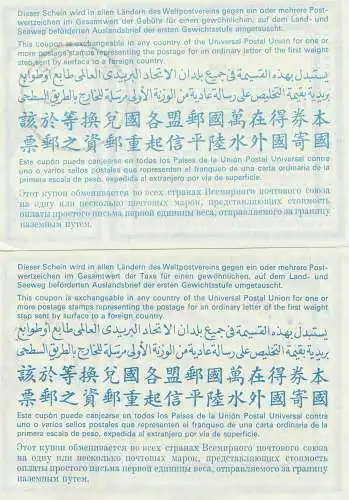 Dieser Schein wird in allen Ländern des Weltpostvereins gegen ein oder mehrere Post-
wertzeichen im Gesamtwert der Gebühr für einen gewöhnlichen, auf dem Land- und
Seeweg beförderten Auslandsbrief der ersten Gewichtsstufe umgetauscht.
This coupon is exchangeable in any country of the Universal Postal Union for one or
more postage stamps representing the postage for an ordinary letter of the first weight
step sent by surface to a foreign country.
يستبدل بهذه القسيمة في جميع بلدان الاتحاد البريدى العالمى طابع أو طوابع
بريدية بقيمة التخليص على رسالة عادية من الوزنة الأولى مرسلة للخارج بالطريق السطحى
本券得在萬國郵盟各國兌換等於該
國寄國外水陸平信起重郵資之郵票
Este cupón puede canjearse en todos los Países de la Unión Postal Universal contra
uno o varios sellos postales que representen el franqueo de una carta ordinaria de la
primera escala de peso, expedida al extranjero por vía de superficie.
Этот купон обменивается во всех странах Всемирного почтового союза
на одну или несколько почтовых марок, представляющих стоимость
оплаты простого письма первой единицы веса, отправляемого за границу
наземным путем.
Dieser Schein wird in allen Ländern des Weltpostvereins gegen ein oder mehrere Post-
wertzeichen im Gesamtwert der Taxe für einen gewöhnlichen, auf dem Land- und
Seeweg beförderten Auslandsbrief der ersten Gewichtsstufe umgetauscht.
This coupon is exchangeable in any country of the Universal Postal Union for one or
more postage stamps representing the postage for an ordinary letter of the first weight
step sent by surface to a foreign country.
يستبدل بهذه القسيمة في جميع بلدان الاتحاد البريدى العالمى طابع أو طوابع
بريدية بقيمة التخليص على رسالة عادية من الوزنة الأولى مرسلة للخارج بالطريق السطحى
本券得在萬國郵盟各國兌換等於該
國寄國外水陸平信起重郵資之郵票
Este cupón puede canjearse en todos los Países de la Unión Postal Universal contra
uno o varios sellos postales que representen el franqueo de una carta ordinaria de la
primera escala de peso, expedida al extranjero por vía de superficie.
Этот купон обменивается во всех странах Всемирного почтового союза
на одну или несколько почтовых марок, представляющих стоимость
оплаты простого письма первой единицы веса, отправляемого за границу
наземным путем.